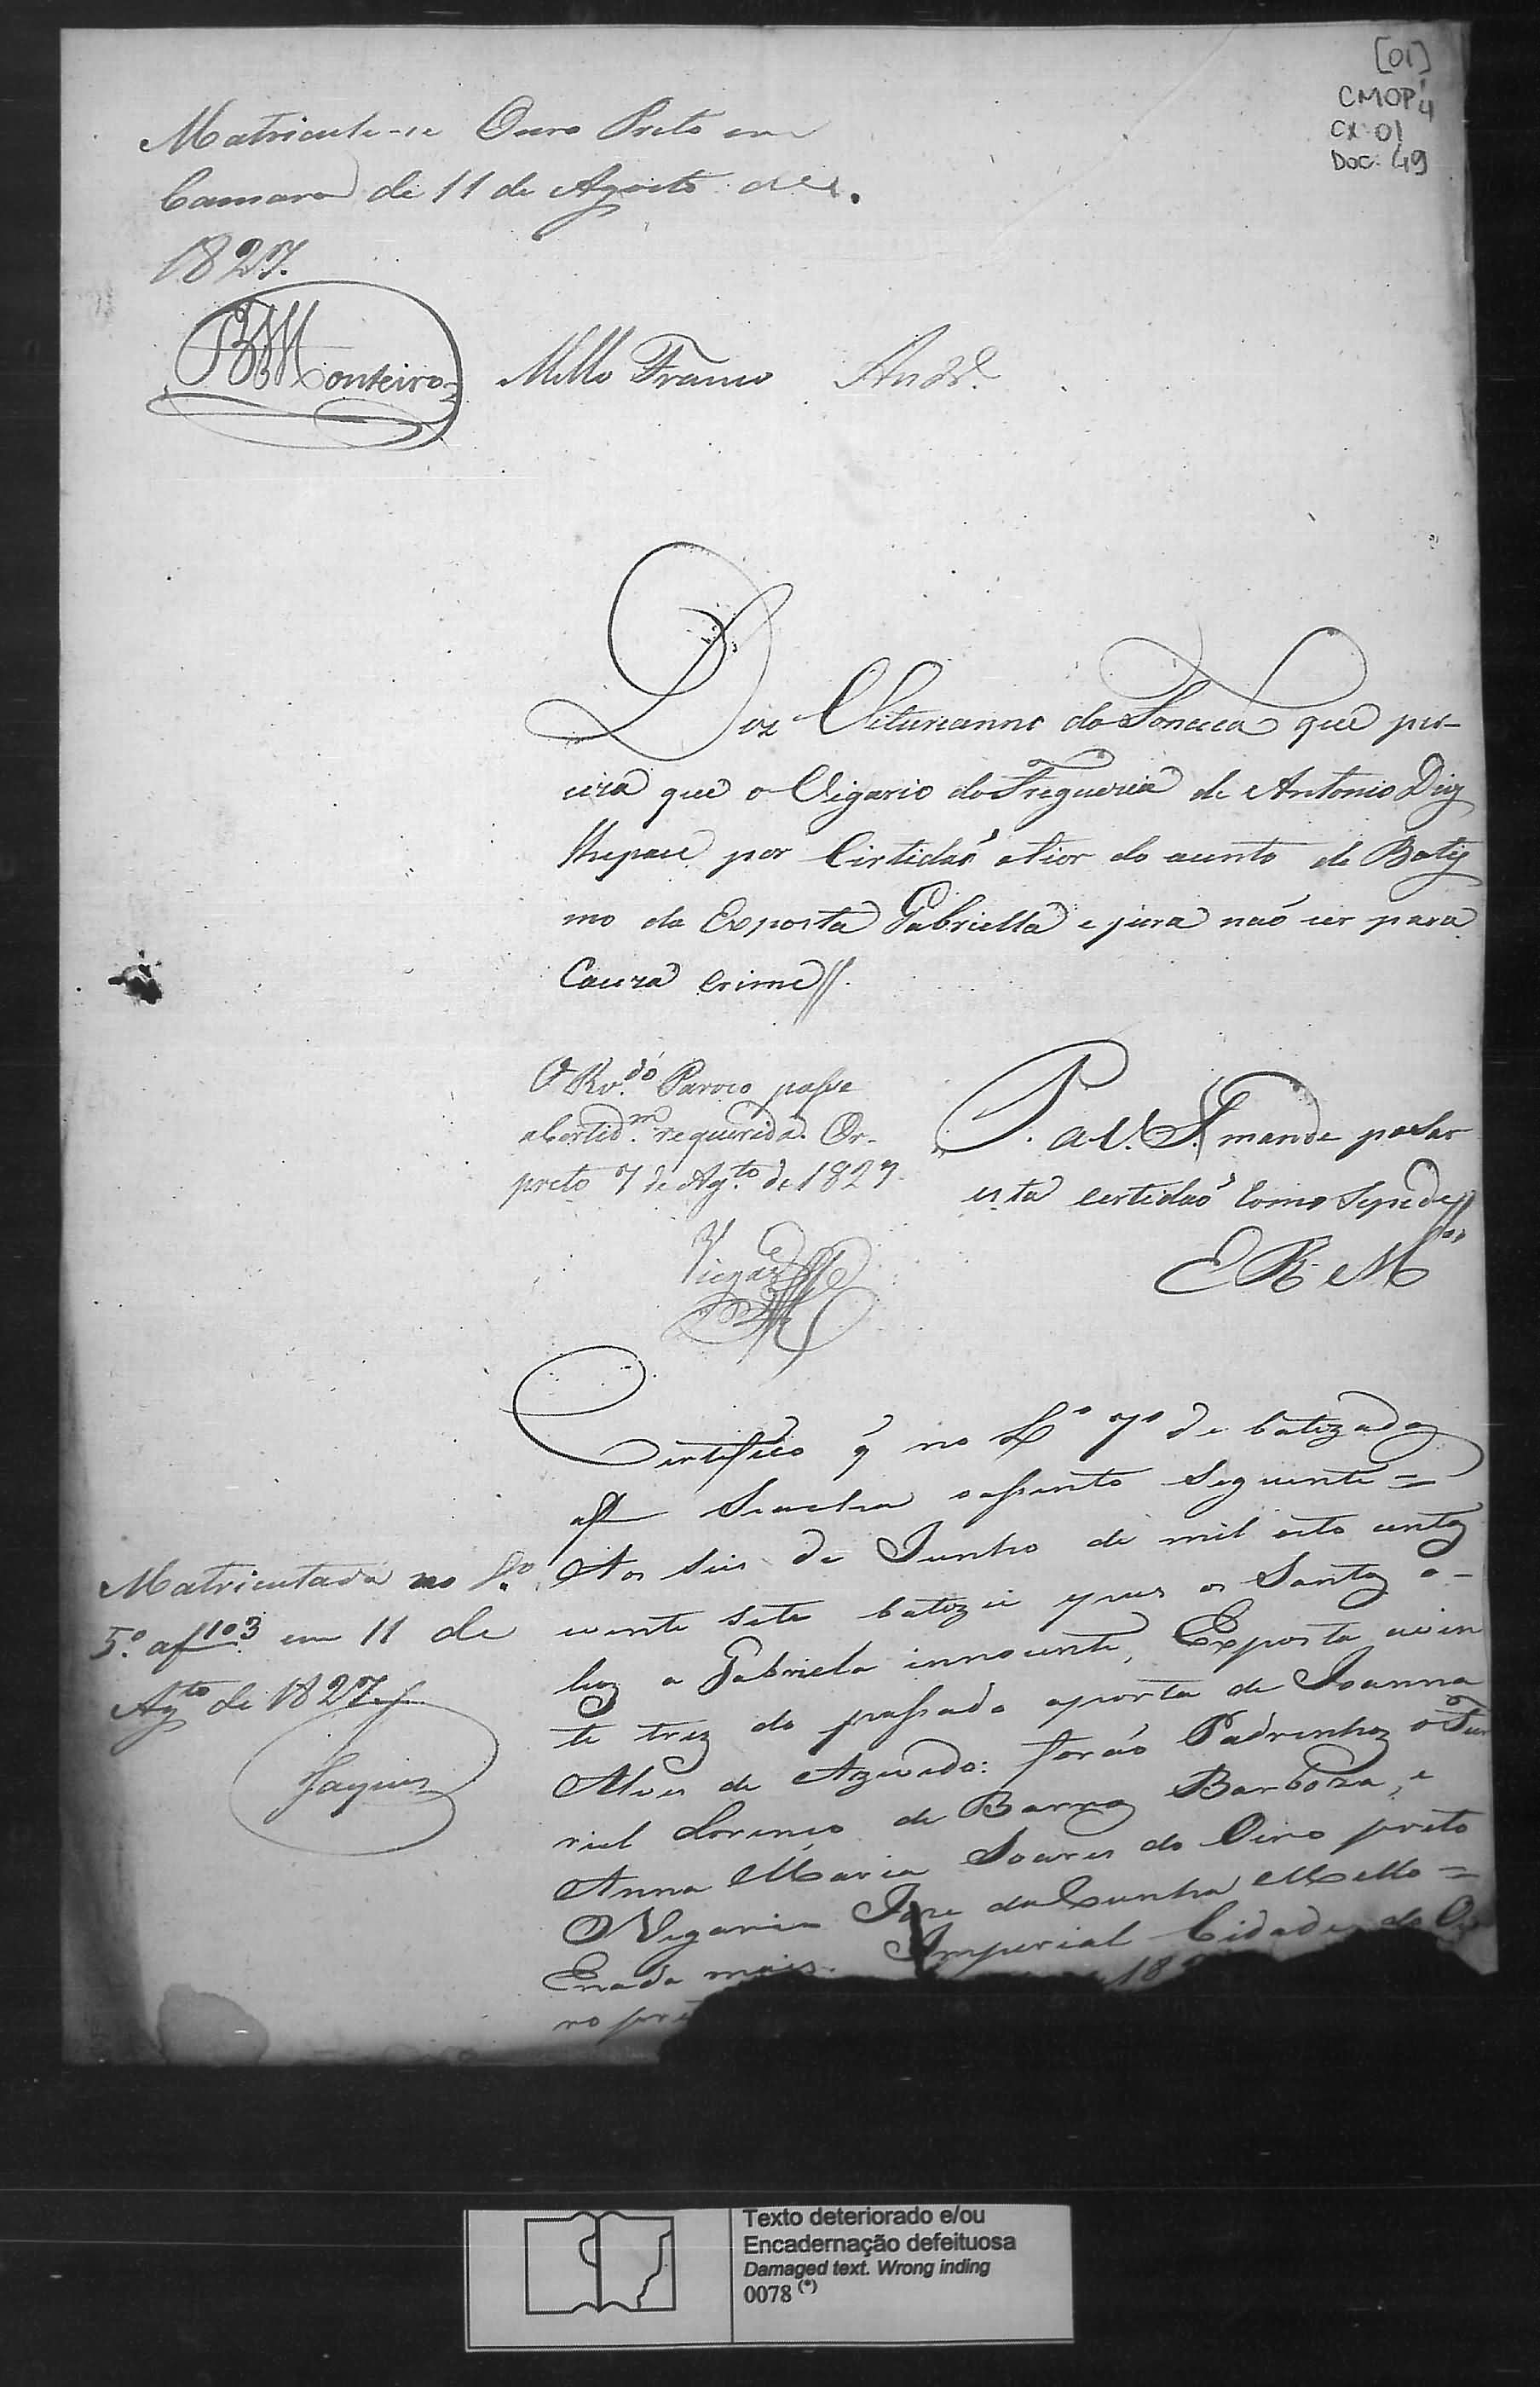 [01]
CMOP 4
CX 01
Doc: 49
Matricule-se Ouro Preto em
Camara de 11 de Agosto de
1827.
Monteiro Mello Franco And.e
Diz Veturianno da Fonceca que per-
ciza que o Vigario da Freguezia de Antonio Dias
lhe pace por Certidaõ o tior do acento de Batis
mo da Exposta Gabriella e jura naõ cer para
Cauza Crime
O Rv.do Paroco passe
a Certid.m requerida. Or-
preto 7 de Ag.to de 1827.
P. a V. S. mande pasar
esta certidaõ como Sepede
Viegas
E R M
Certifico q̃ no L.o 7o de batizados
af Seacha oassento seguinte =
Aos seis de Junho de mil oito centos
evinte sete batizei epus os Santos o-
leos a Gabriela innocente, Exposta avin
te tres do passado aporta de Joanna
Alves de Azevedo: foraõ Padrinhos o Fur
riel Lorenço de Barros Barboza, e
Anna Maria Soares do Oiro preto
O Vigario Joze da Cunha Mello =
Enada mais. Imperial Cidade do Oi
ro pre 18
Matriculada no L.o
5.o af 103 em 11 de
Ag.to de 1827
Jaques
Texto deteriorado e/ou
Encadernação defeituosa
Damaged text. Wrong inding
0078 (*)